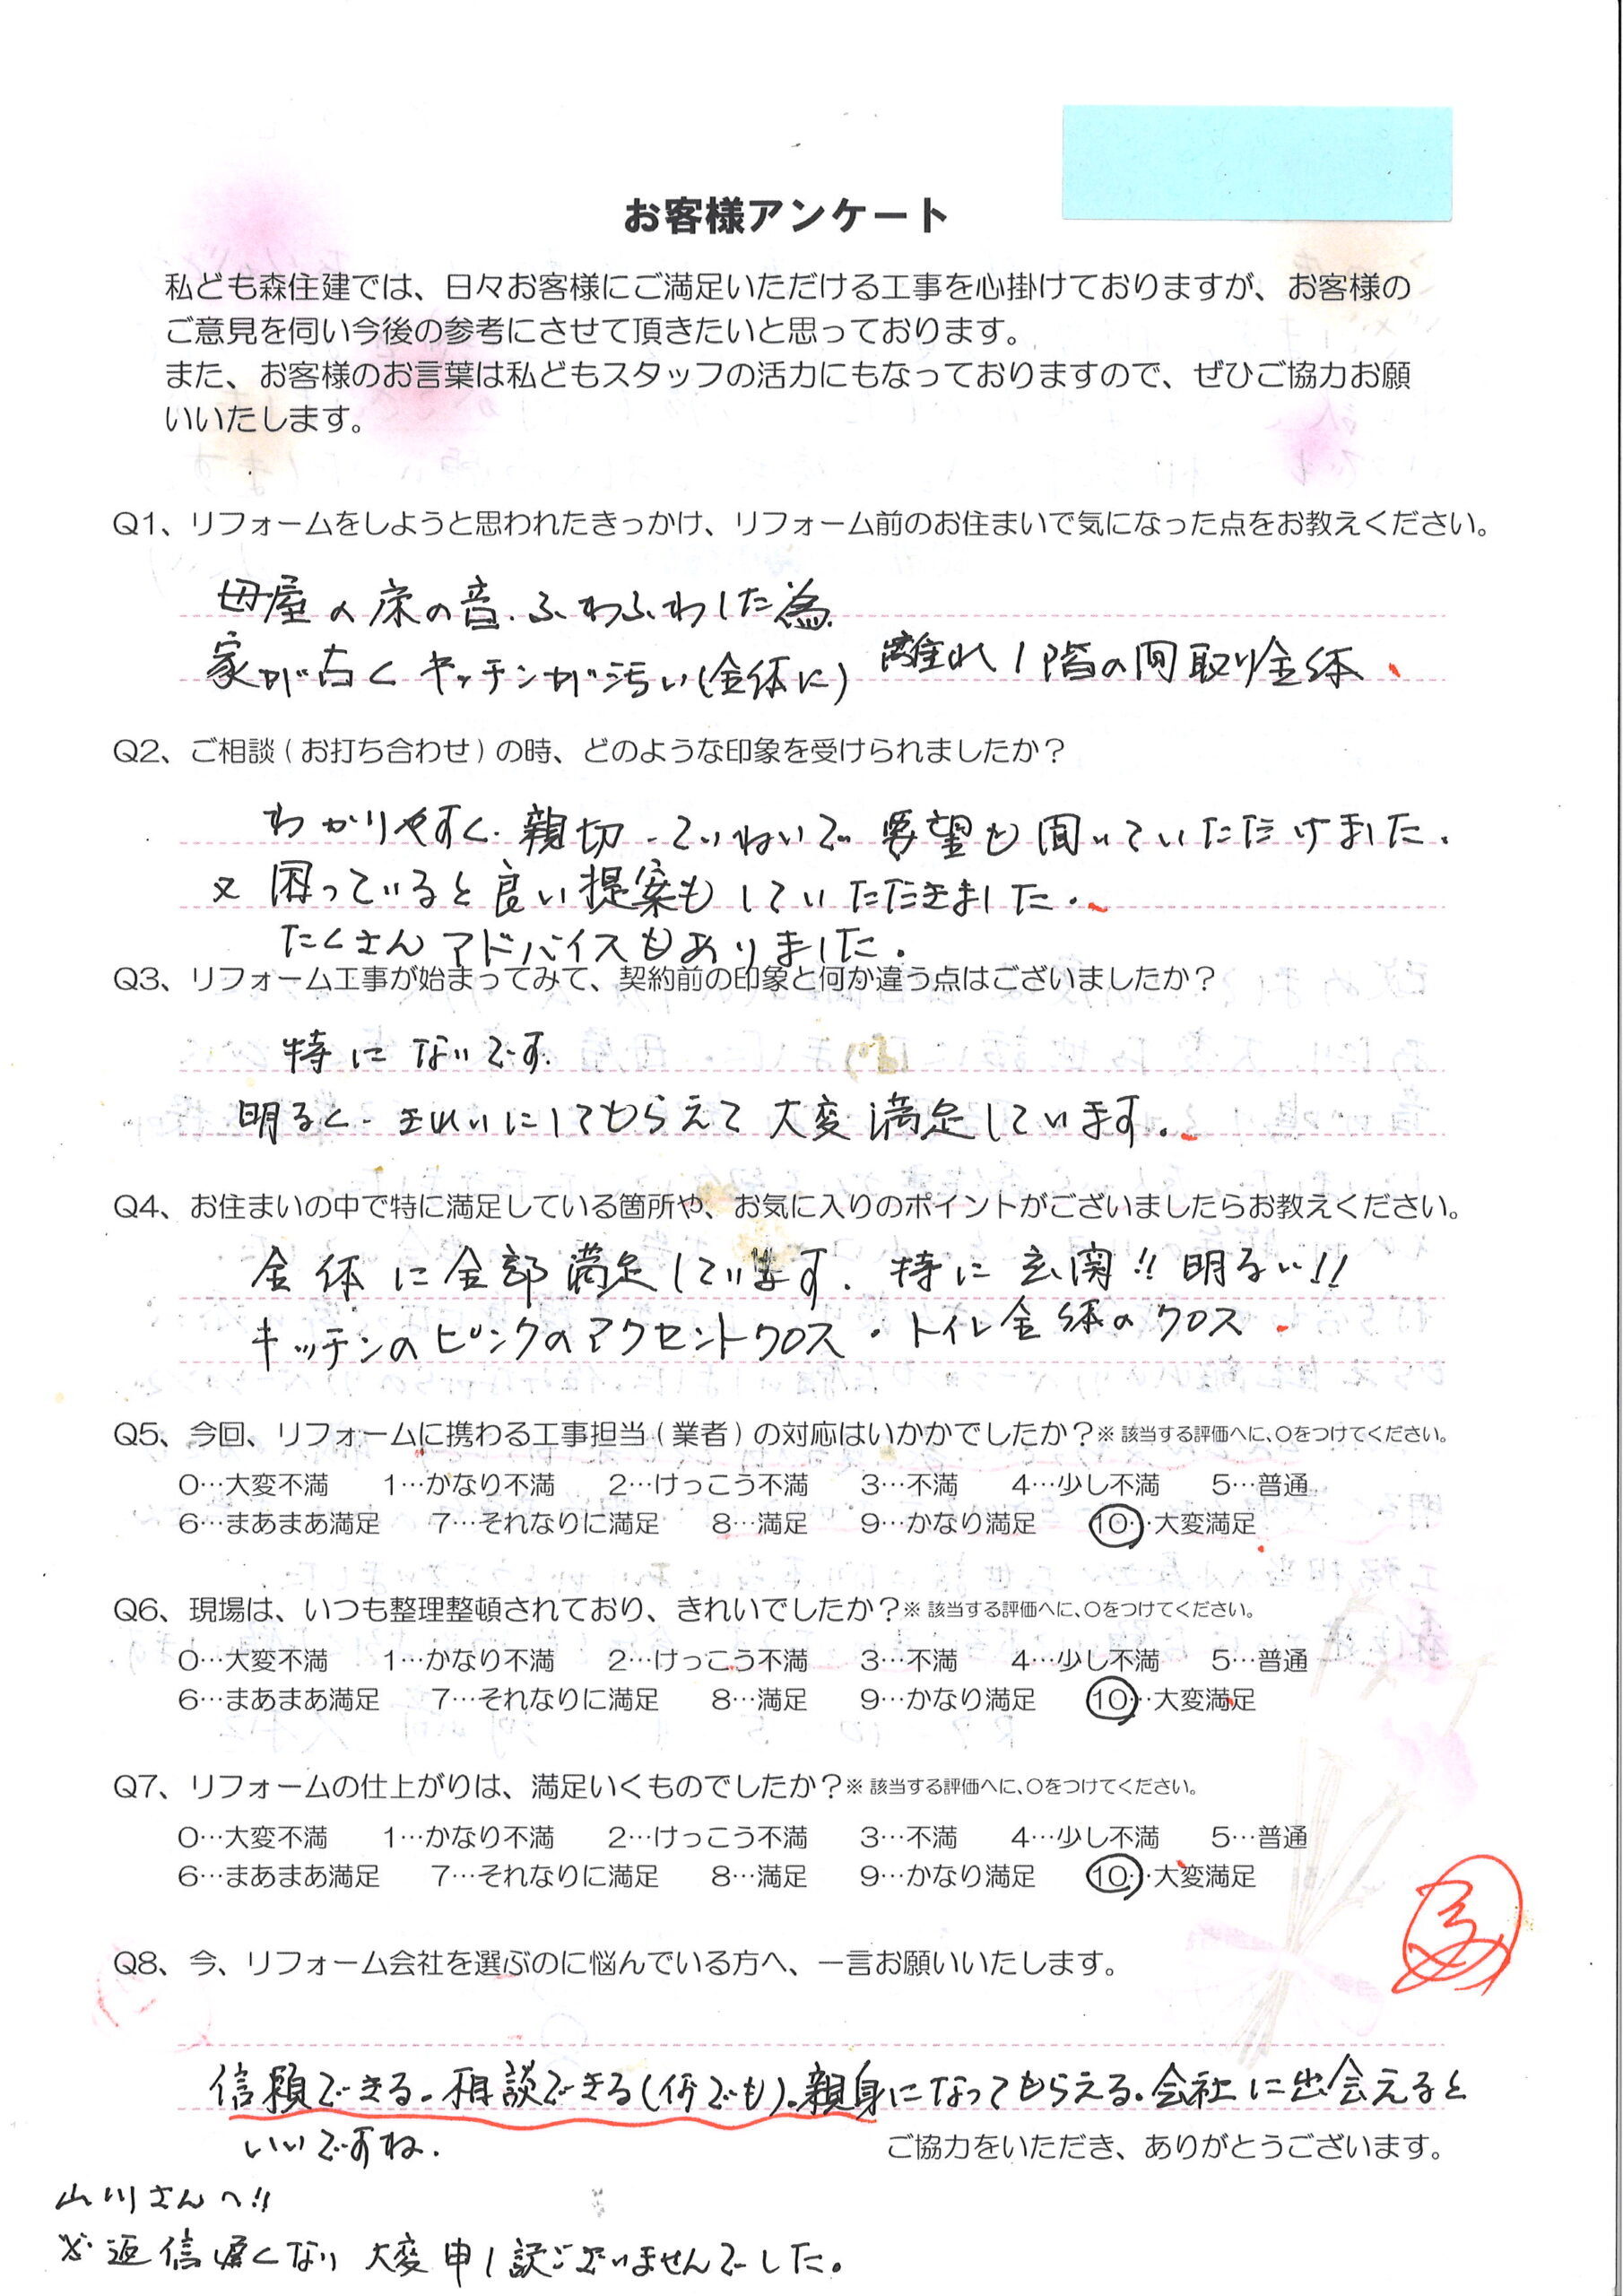 お客様アンケート
私ども森住建では、日々お客様にご満足いただける工事を心掛けておりますが、お客様の
ご意見を伺い今後の参考にさせて頂きたいと思っております。
また、お客様のお言葉は私どもスタッフの活力にもなっておりますので、ぜひご協力お願
いいたします。
Q1、リフォームをしようと思われたきっかけ、リフォーム前のお住まいで気になった点をお教えください。
母屋の床の音.ふわふわした為.
家が古くキッチンが汚い(全体に) 離れ1階の間取り全体
Q2、ご相談(お打ち合わせ)の時、どのような印象を受けられましたか?
わかりやすく.親切.ていねいで要望も聞いていただけました.
又困っていると良い提案もしていただきました.
たくさんアドバイスもありました.
Q3、リフォーム工事が始まってみて、契約前の印象と何か違う点はございましたか?
特にないです.
明るく.きれいにしてもらえて大変満足しています.
Q4、お住まいの中で特に満足している箇所や、お気に入りのポイントがございましたらお教えください。
全体に全部満足しています.特に玄関!!明るい!!
キッチンのピンクのアクセントクロス・トイレ全体のクロス
Q5、今回、リフォームに携わる工事担当(業者)の対応はいかがでしたか?※該当する評価へに、○をつけてください。
0…大変不満 1…かなり不満 2…けっこう不満 3…不満 4…少し不満 5…普通
6…まあまあ満足 7…それなりに満足 8…満足 9…かなり満足 10…大変満足
Q6、現場は、いつも整理整頓されており、きれいでしたか?※該当する評価へに、○をつけてください。
0…大変不満 1…かなり不満 2…けっこう不満 3…不満 4…少し不満 5…普通
6…まあまあ満足 7…それなりに満足 8…満足 9…かなり満足 10…大変満足
Q7、リフォームの仕上がりは、満足いくものでしたか?※該当する評価へに、○をつけてください。
0…大変不満 1…かなり不満 2…けっこう不満 3…不満 4…少し不満 5…普通
6…まあまあ満足 7…それなりに満足 8…満足 9…かなり満足 10…大変満足
Q8、今、リフォーム会社を選ぶのに悩んでいる方へ、一言お願いいたします。
信頼できる.相談できる(何でも).親身になってもらえる.会社に出会えると
いいですね.
ご協力をいただき、ありがとうございます。
山川さんへ!!
※返信遅くなり大変申し訳ございませんでした。